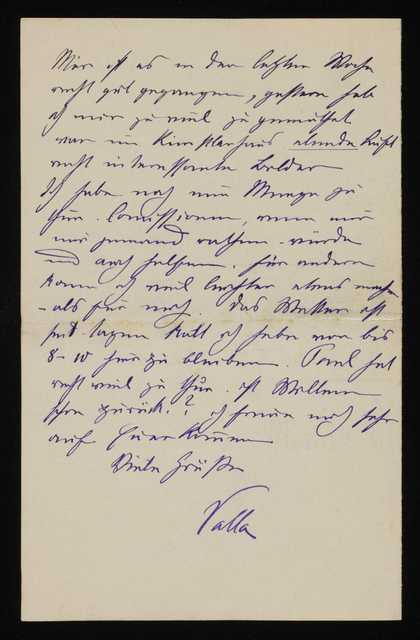 Mir ist es in der letzten Woche
recht gut gegangen, gestern hab
ich mir zu viel zugemuthet
war im Künstlerhaus elende Luft
recht interessante Bilder
Ich habe noch eine Menge zu
thun. Comissionen, wenn mir
nur jemand rathen würde
und auch helfen. für andere
kann ich viel leichter etwas machen
- als für mich. Das Wetter ist
seit Tagen kalt ich habe vor bis
8-10 hier zu bleiben. Paul hat
recht viel zu thun. ist
schon zurück.? ich freue mich sehr
auf Euer Kommen
Viele Grüße
Valla